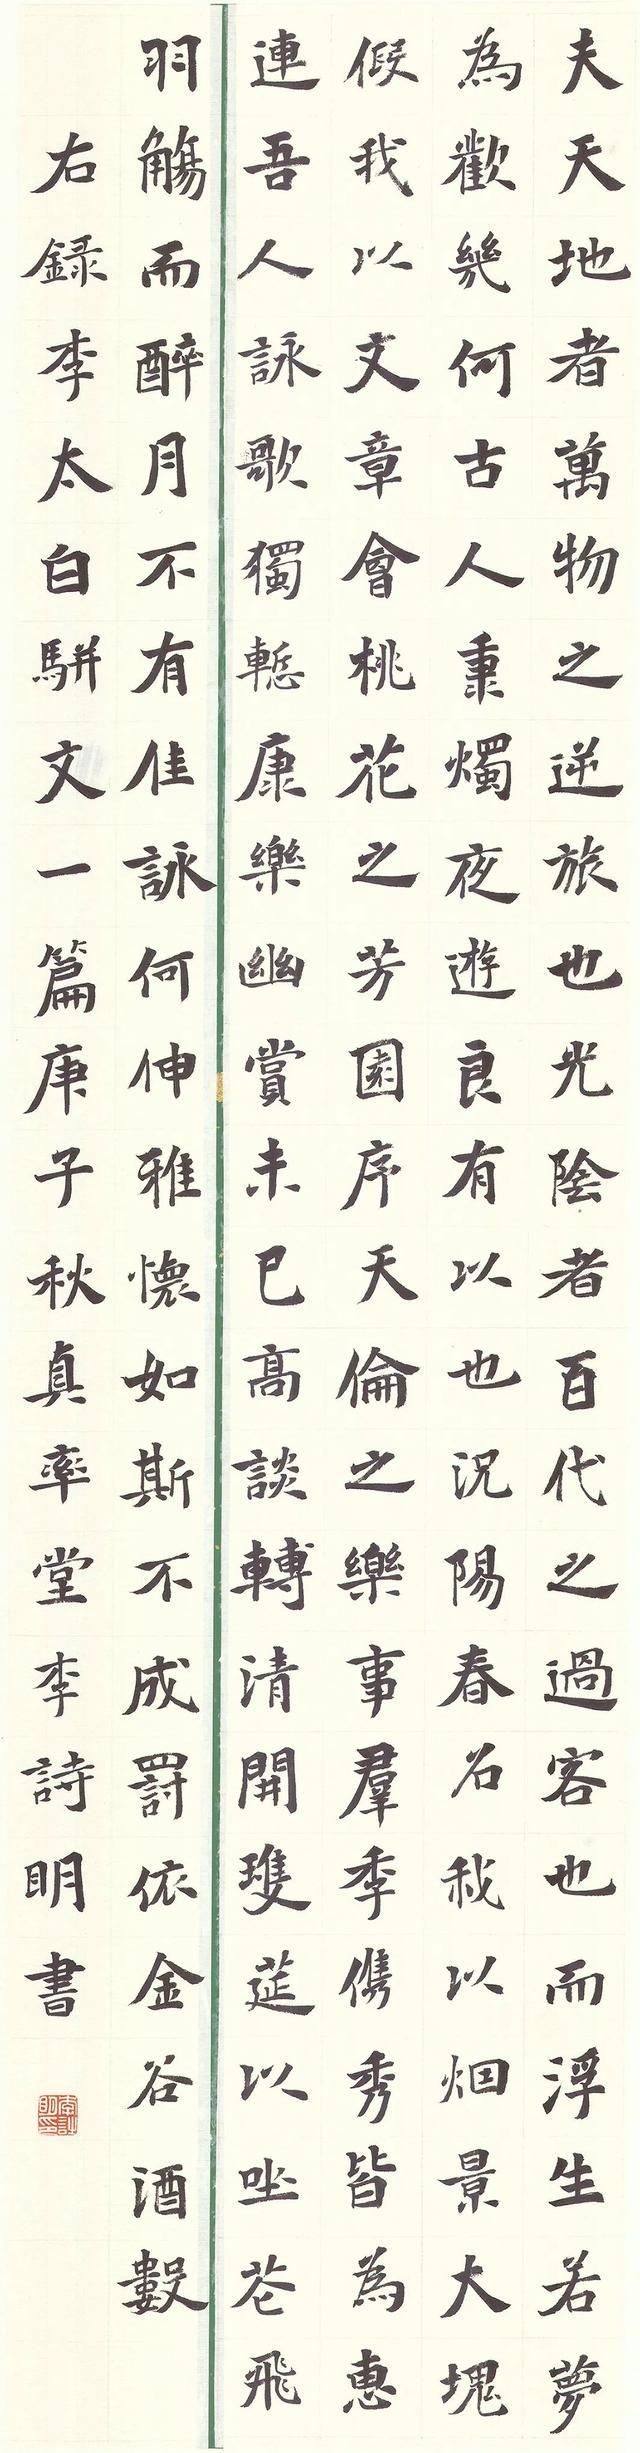 夫天地者萬物之逆旅也光陰者百代之過客也而浮生若夢
為歡幾何古人秉燭夜遊良有以也況陽春召我以烟景大塊
假我以文章會桃花之芳園序天倫之樂事羣季儁秀皆為惠
連吾人詠歌獨慙康樂幽賞未已高談轉清開瓊筵以坐花飛
羽觴而醉月不有佳詠何伸雅懷如斯不成罰依金谷酒數
右録李太白駢文一篇庚子秋真率堂李詩明書
李詩明印